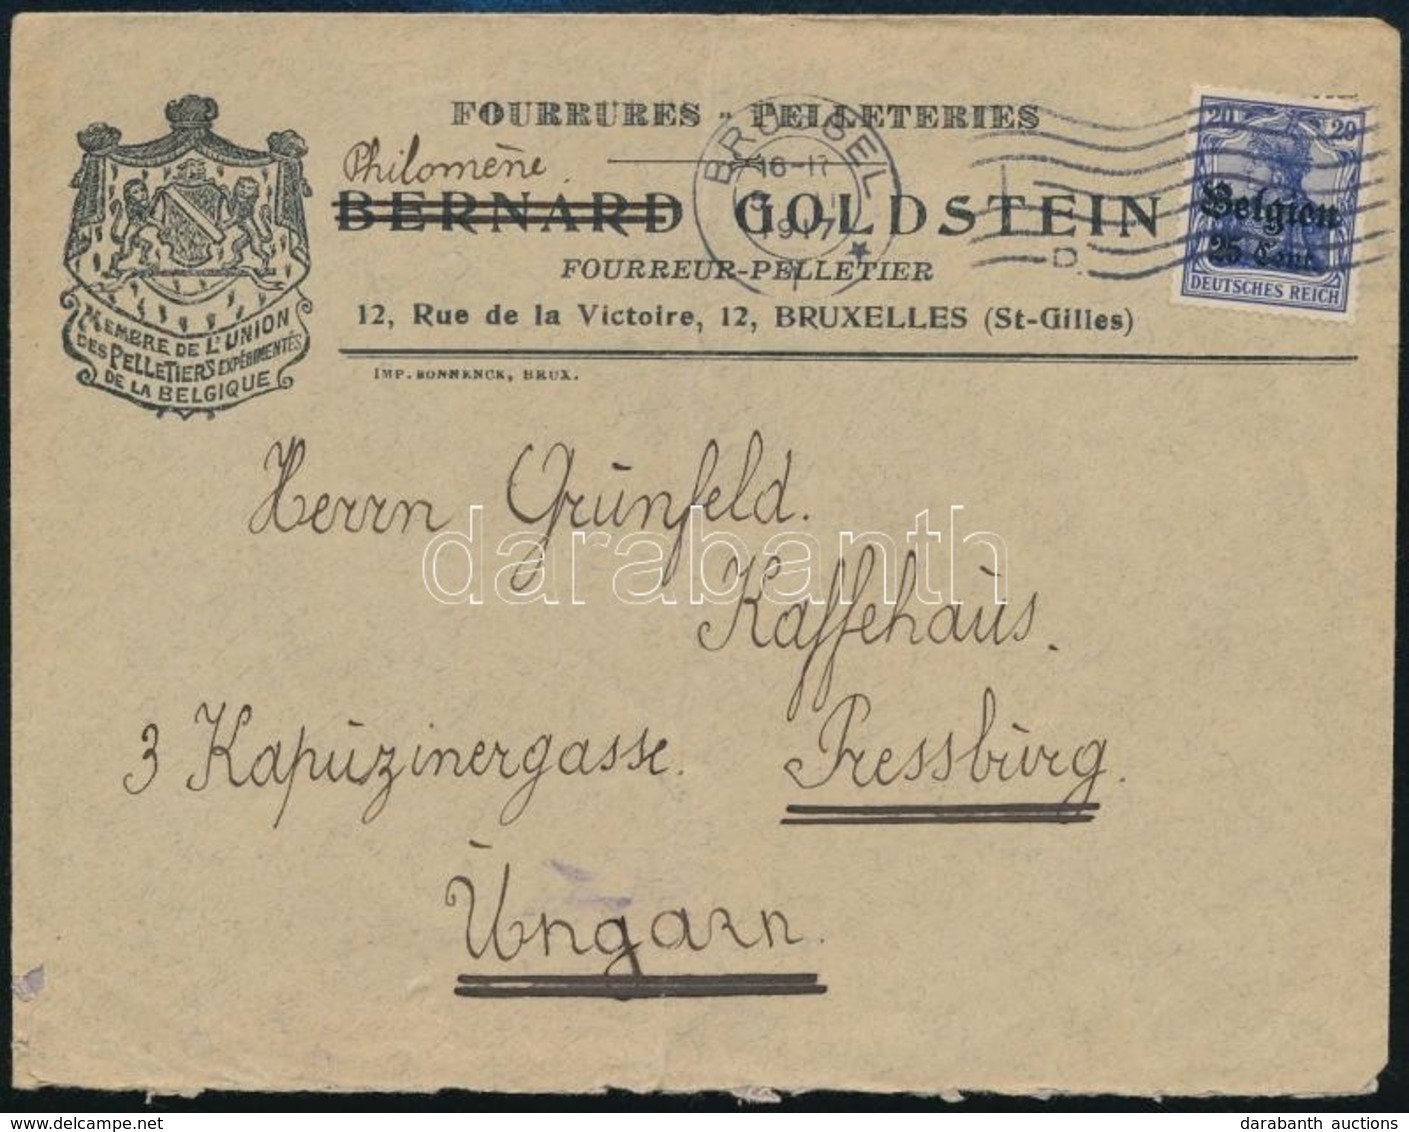 FOURRURES - PELLETERIES
Philomène.
BERNARD GOLDSTEIN
FOURREUR-PELLETIER
12, Rue de la Victoire, 12, BRUXELLES (St-Gilles)
IMP. BONNENCK, BRUX.
MEMBRE DE L'UNION
DES PELLETIERS EXPÉRIMENTÉS
DE LA BELGIQUE
BRÜSSEL
16-17
1917
1
D.
20 20
Belgien
25 Cent.
DEUTSCHES REICH
Herrn Grünfeld.
Kaffehaus.
3 Kapuzinergasse. Pressburg.
Ungarn.
darabanth
delcampe.net
darabanth auctions